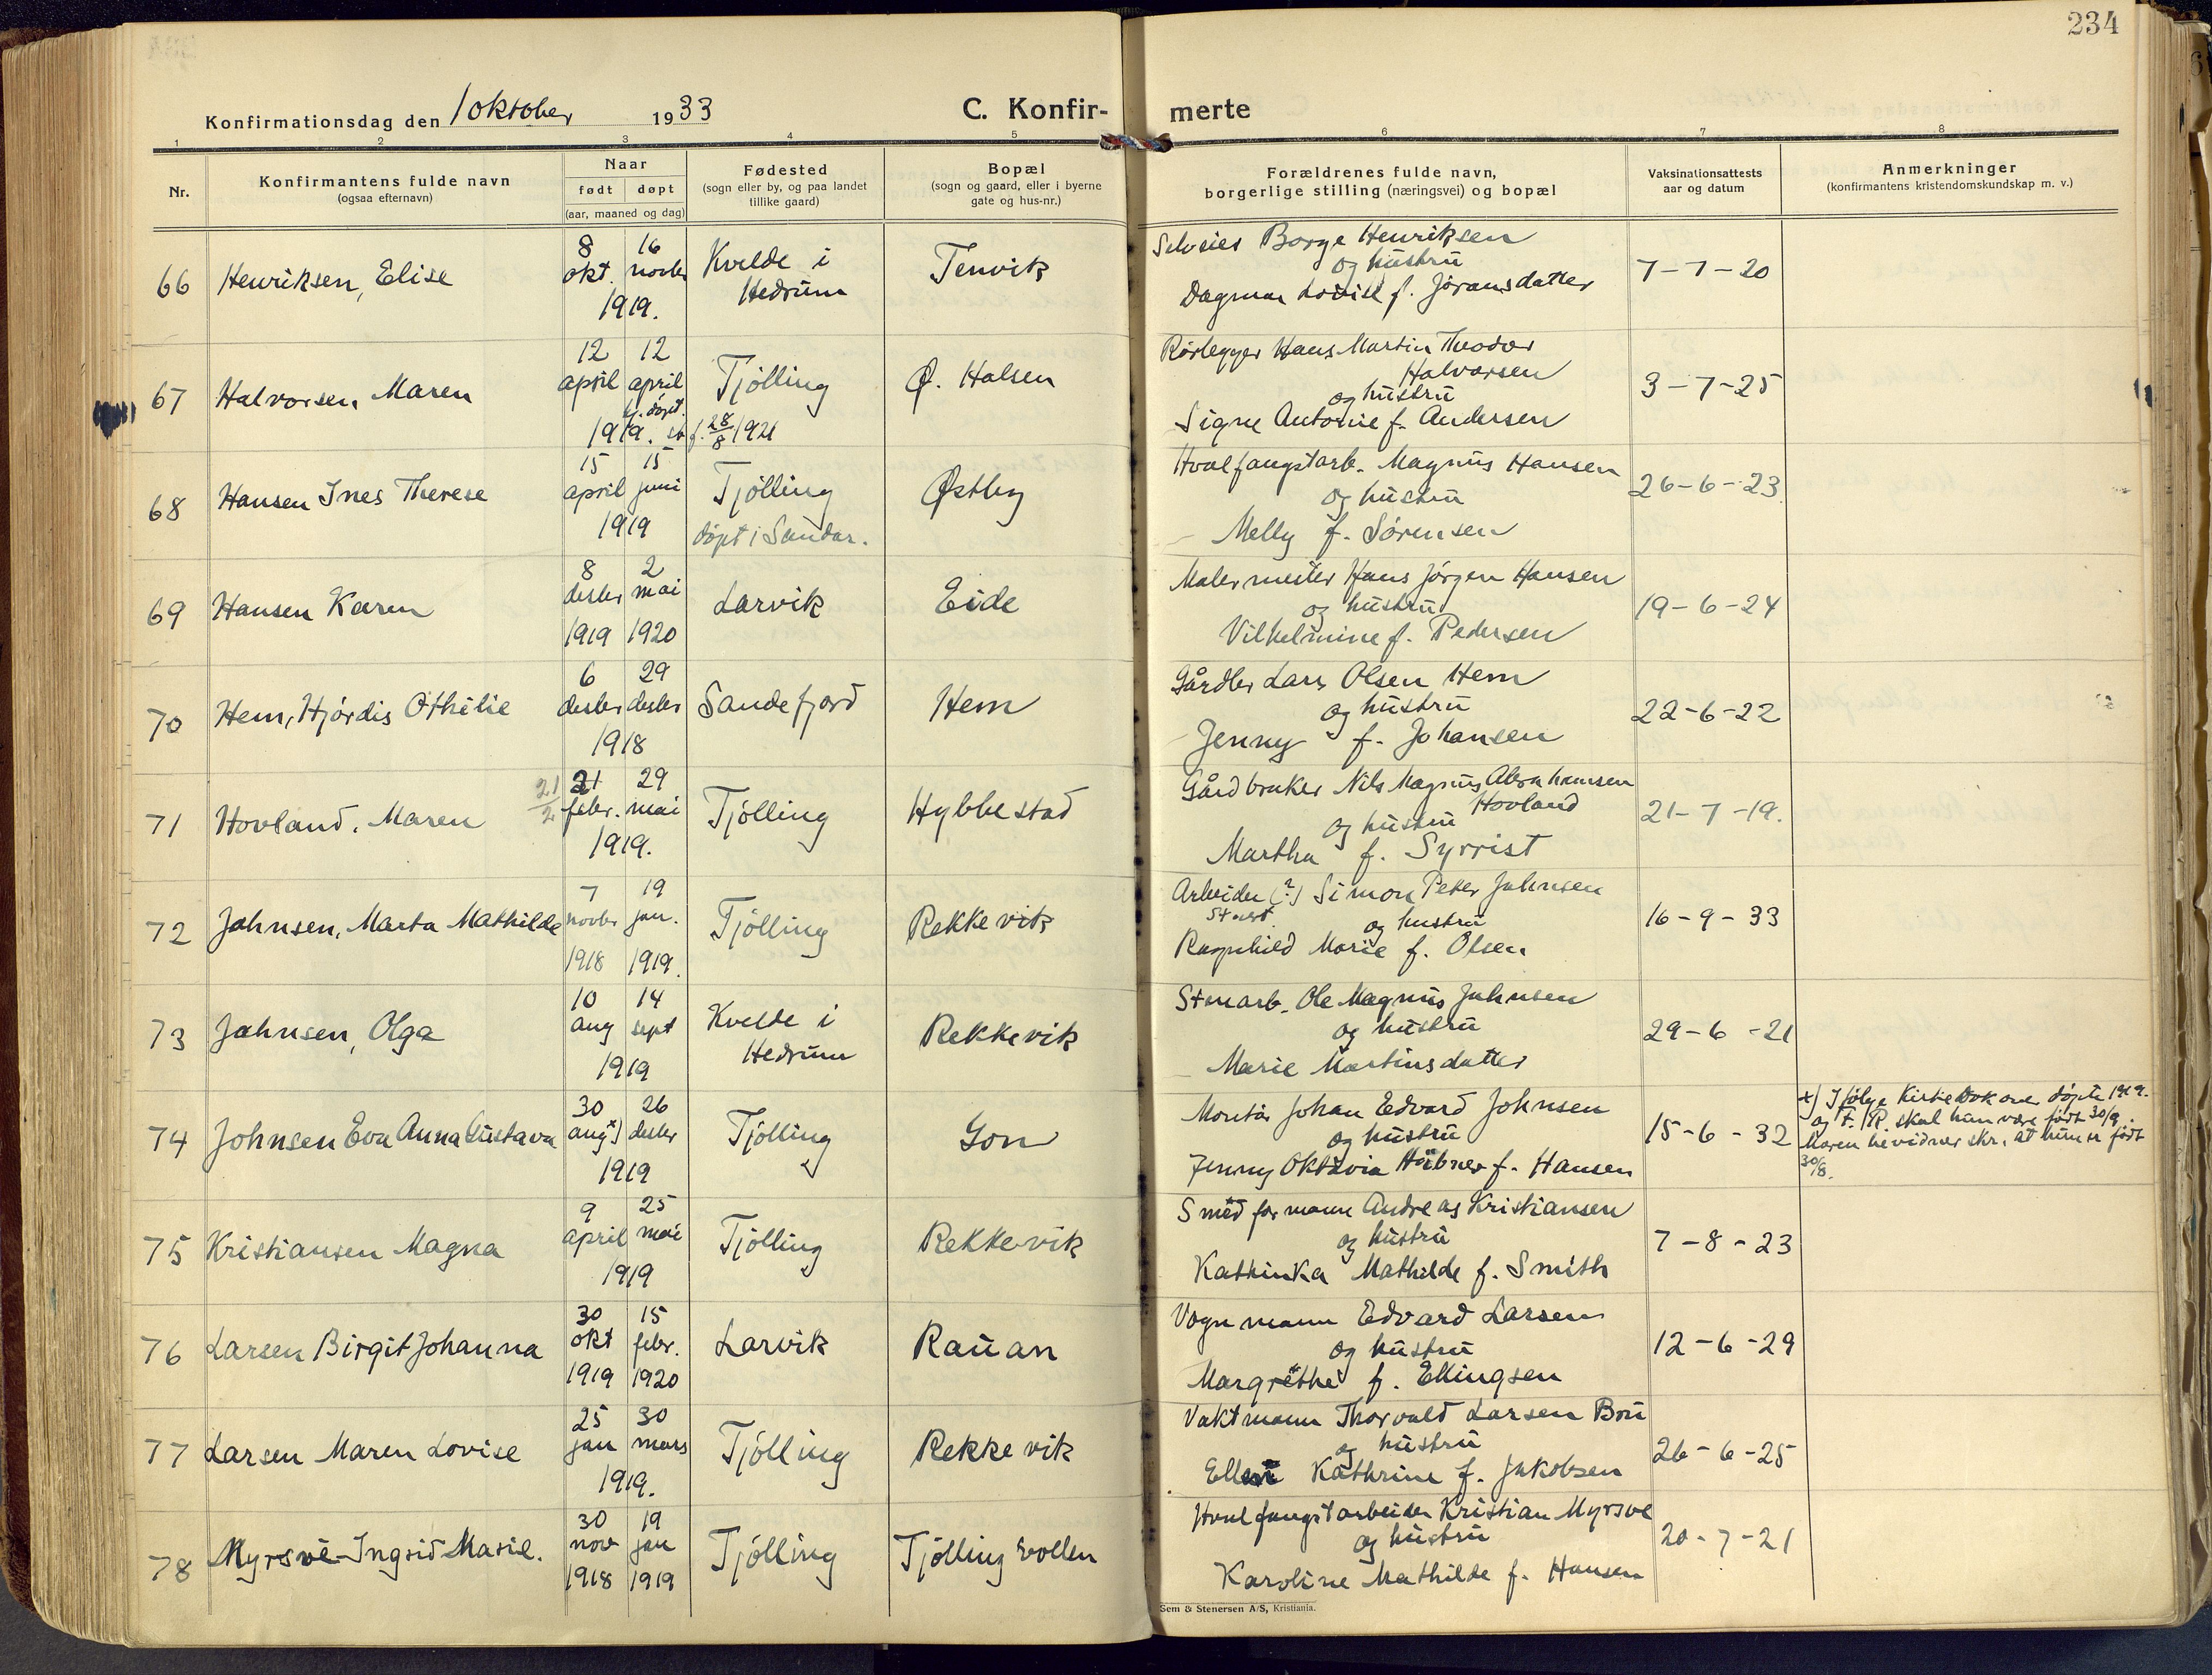 234
Konfirmationsdag den 1 oktober 1933
C. Konfir-
merte
1 2 3 4 5 6 7 8
Nr.
Konfirmantens fulde navn
(ogsaa efternavn)
Naar
født døpt
(aar, maaned og dag)
Fødested
(sogn eller by, og paa landet
tillike gaard)
Bopæl
(sogn og gaard, eller i byerne
gate og hus-nr.)
Forældrenes fulde navn,
borgerlige stilling (næringsvei) og bopæl
Vaksinationsattests
aar og datum
Anmerkninger
(konfirmantens kristendomskundskap m. v.)
66 Henriksen, Elise
8 16
okt. novbr
1919.
Kvelde i
Hedrum
Tenvik
Selveier Borge Henriksen
og hustru
Dagmar Lovise f. Jøransdatter
7-7-20
67 Halvorsen, Maren
12 12
april april
ej. døpt.
1919. st. f. 28/8 1921
Tjølling
Ø. Halsen
Rørlegger Hans Martin Theodor
Halvorsen
og hustru
Signe Antonie f. Andersen
3-7-25
68 Hansen Ines Therese
15 15
april juni
1919
Tjølling
døpt i Sandar.
Østby
Hvalfangstarb. Magnus Hansen
og hustru
Melly f. Sørensen
26-6-23
69 Hansen Karen
8 2
desbr mai
1919 1920
Larvik
Eide
Malermester Hans Jørgen Hansen
og hustru
Vilhelmine f. Pedersen
19-6-24
70 Hem, Hjørdis Othilie
6 29
desbr desbr
1918
Sandefjord
Hem
Gårdbr Lars Olsen Hem
og hustru
Jenny f. Johansen
22-6-22
71 Hovland, Maren
21/2 21 29
febr. mai
1919.
Tjølling
Hybbestad
Gårdbruker Nils Magnus Abrahamsen
Hovland
og hustru
Martha f. Syrrist
21-7-19.
72 Jahnsen, Marta Mathilde
7 19
novbr jan.
1918 1919.
Tjølling
Rekkevik
Arbeider (?) Simon Peter Jahnsen
og hustru
Ragnhild Marie f. Olsen
16-9-33
73 Jahnsen, Olga
10 14
aug sept
1919
Kvelde i
Hedrum
Rekkevik
Stenarb. Ole Magnus Jahnsen
og hustru
Marie Martinsdatter
29-6-21
74 Johnsen Eva Anna Gustava
30 26
aug x) desbr
1919
Tjølling
Gon
Montør Johan Edvard Johnsen
og hustru
Jenny Oktavia Hübner f. Hansen
15-6-32
x) Ifølge Kirkebok over døpte 1919.
og F. R. skal hun være født 30/9.
Moren bevidner skr. at hun er født
30/8.
75 Kristiansen Magna
9 25
april mai
1919
Tjølling
Rekkevik
Smedformann Andreas Kristiansen
og hustru
Kathinka Mathilde f. Smith
7-8-23
76 Larsen Birgit Johanna
30 15
okt febr.
1919 1920
Larvik
Rauan
Vognmann Edvard Larsen
og hustru
Margrethe f. Ellingsen
12-6-29
77 Larsen Maren Lovise
25 30
jan mars
1919.
Tjølling
Rekkevik
Vaktmann Thorvald Larsen Bru
og hustru
Ellen Kathrine f. Jakobsen
26-6-25
78 Myrsve Ingrid Marie.
30 19
nov jan
1918 1919
Tjølling
Tjølling vollen
Hvalfangstarbeider Kristian Myrsve
og hustru
Karoline Mathilde f. Hansen
20-7-21
Sem & Stenersen A/S, Kristiania.